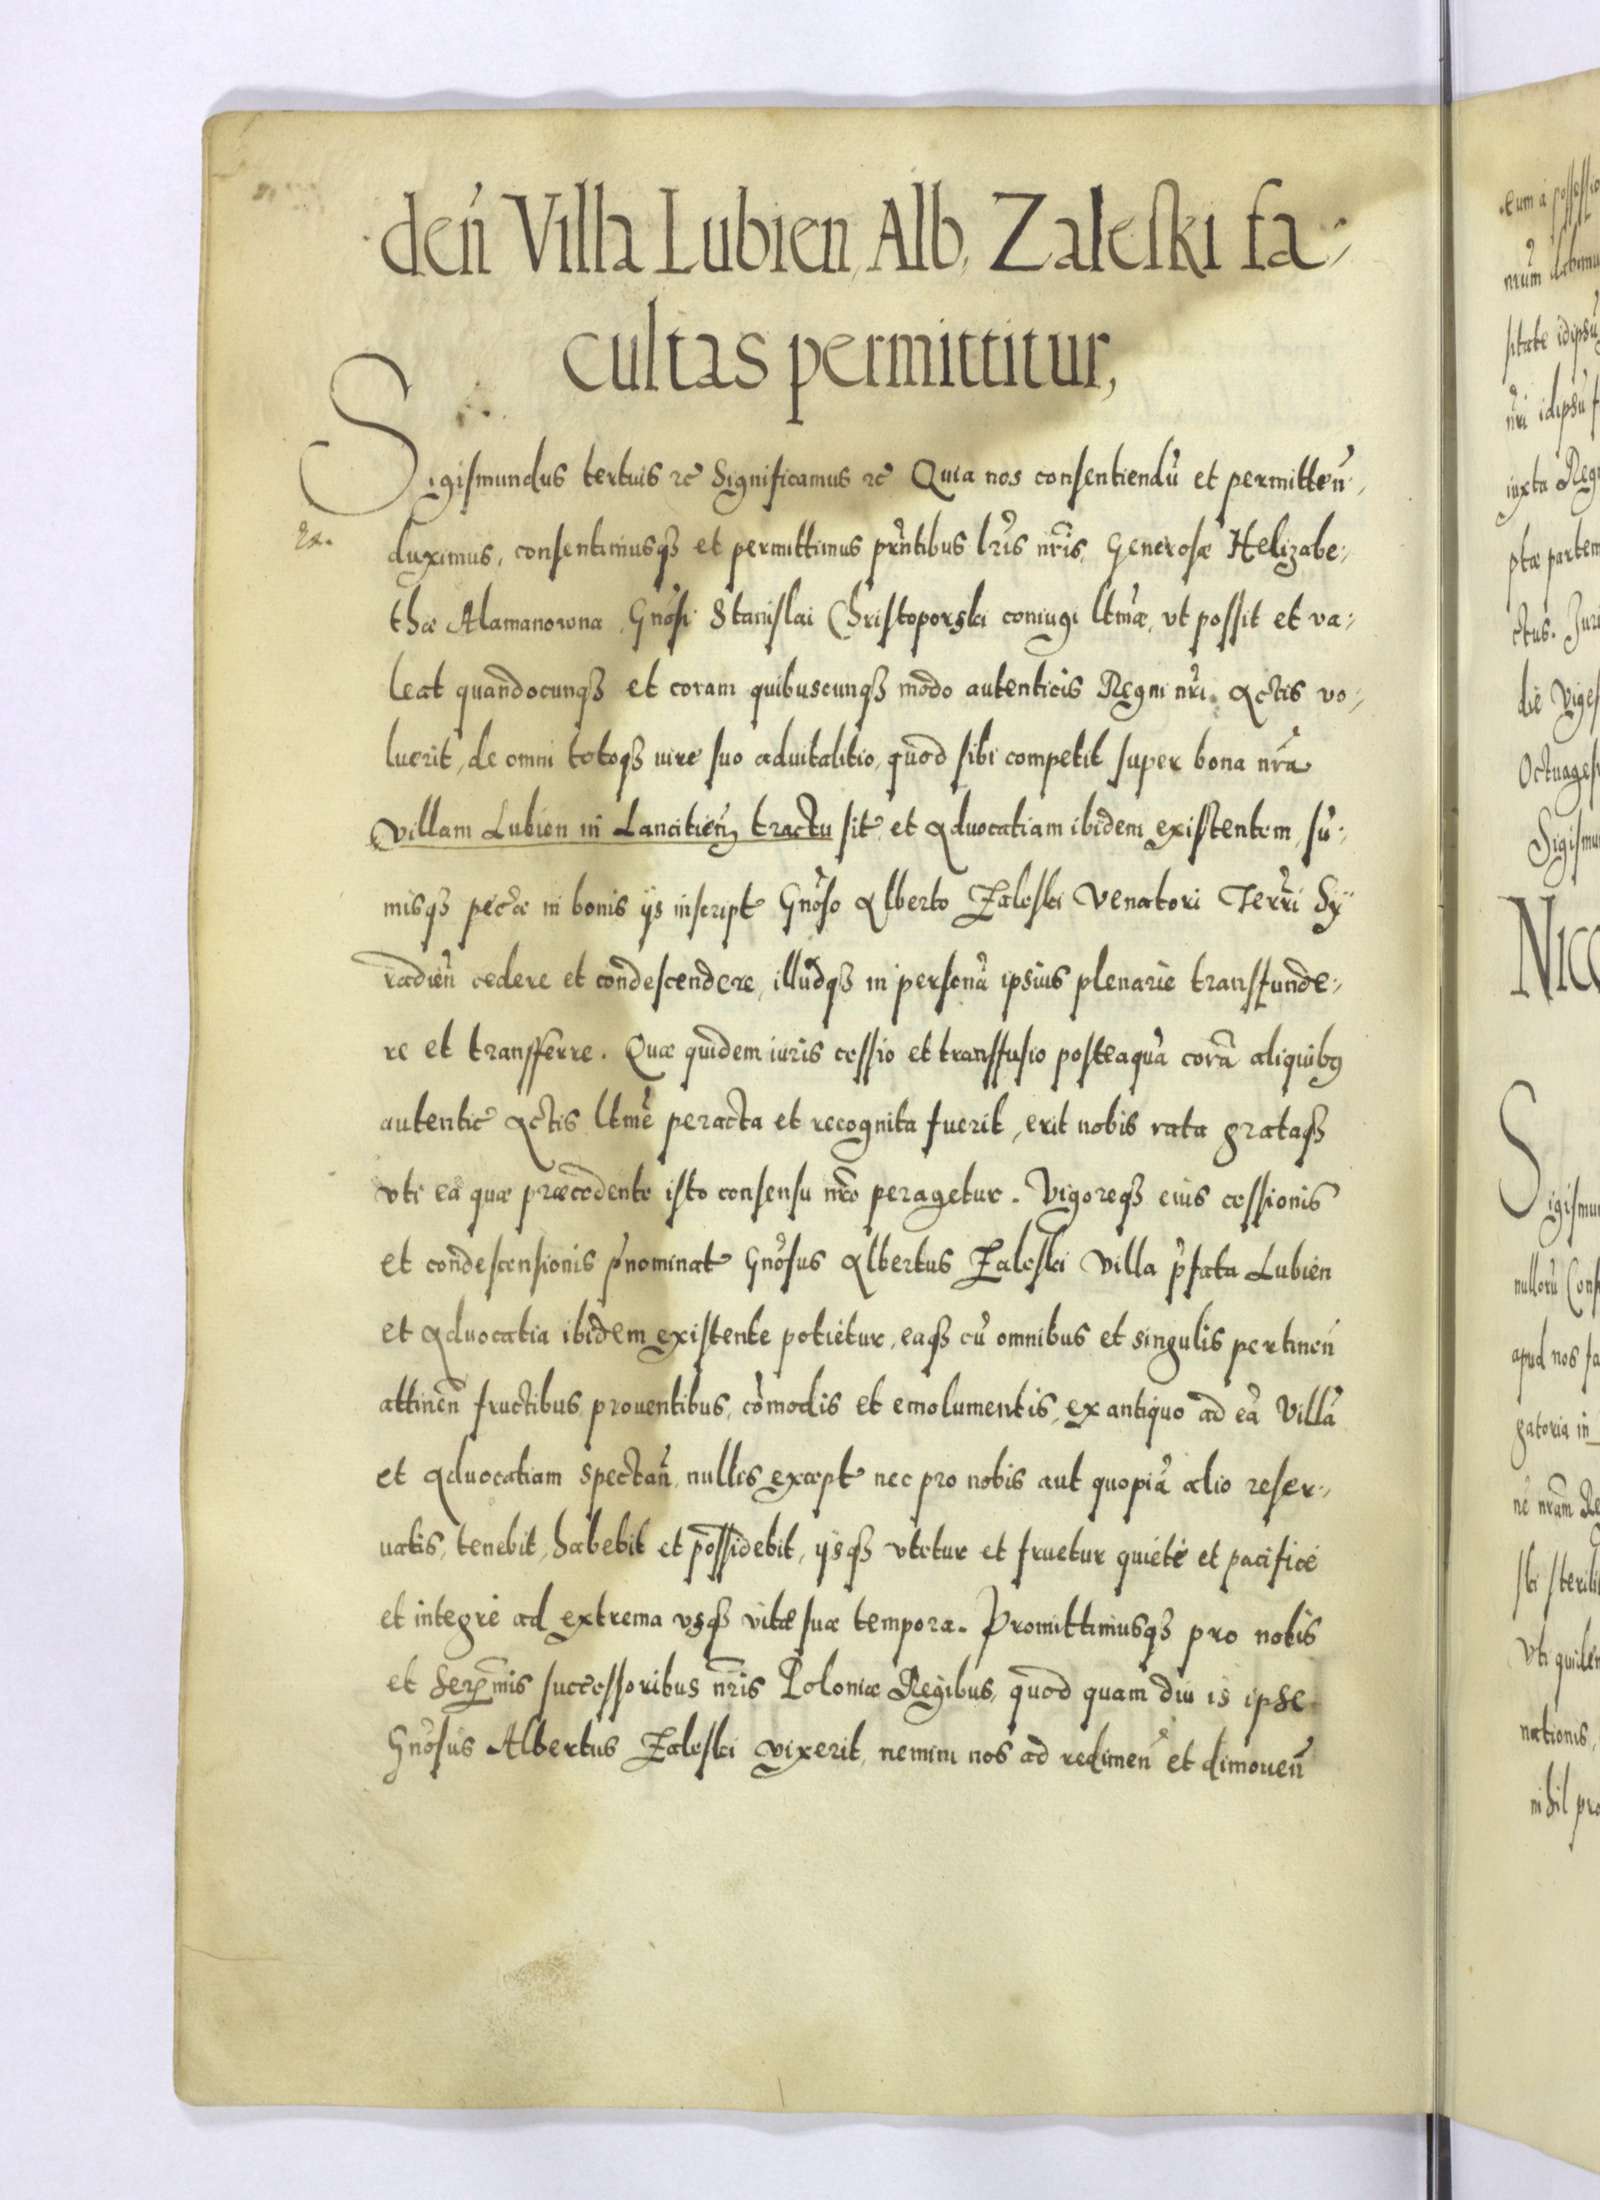 deń Villa Lubien, Alb, Zaleski fa-
cultas permittitur,
Sigismundus tertius &c Significamus &c Quia nos consentiendũ et permitteñ,
duximus, consentimusqȝ et permittimus prñtibus lr̃is nr̃is, Generosæ Helizabe-
thæ Alamanowna, Gnõsi Stanislai Christoporski coniugi ltmæ, vt possit et va-
leat quandocunqȝ et coram quibuscunqȝ modo autenticis Regni nr̃i Actis vo-
luerit, de omni totoqȝ iure suo aduitalitio, quod sibi competit super bona nr̃a
Villam Lubien in Lancitień tractu sit et Aduocatiam ibidem existentem, sũ-
misqȝ pec̃æ in bonis ijs inscript Gnõso Alberto Zaleski Venatori Terr̃i Sy
radień cedere et condescendere, illudqȝ in personã ipsius plenarie transfunde-
re et transferre. Quæ quidem iuris cessio et transfusio posteaquã corã aliquibꝰ
autentic Actis ltmẽ peracta et recognita fuerit, erit nobis rata grataqȝ
vti ea quæ præcedente isto consensu nr̃o peragetur. Vigoreqȝ eius cessionis
et condescensionis p̃nominat Gnõsus Albertus Zaleski Villa p̃fata Lubien
et Aduocatia ibidem existente potietur, eaqȝ cũ omnibus et singulis pertineñ
attineñ fructibus, prouentibus, cõmodis et emolumentis, ex antiquo ad eã Villã
et Aduocatiam spectañ, nullis except nec pro nobis aut quopiã alio reser-
uatis, tenebit, habebit et possidebit, ijsqȝ vtetur et fruetur quietè et pacificè
et integrè ad extrema vsqȝ vitæ suæ tempora. Promittimusqȝ pro nobis
et Serẽnmis successoribus nr̃is Poloniæ Regibus, quod quam diu is ipse
Gnõsus Albertus Zaleski vixerit, nemini nos ad redimeñ et dimoueñ
eum à
nrũm
sitate idipsũ
nr̃i idipsũ
iuxta
ptæ partem
ctus.
die Viges
Sigismu
NICO
Sigismu
nullorũ Cons
apud nos fa
gatoria in
nẽ nr̃am Re
ski
Vti
nationis,
nihil pro